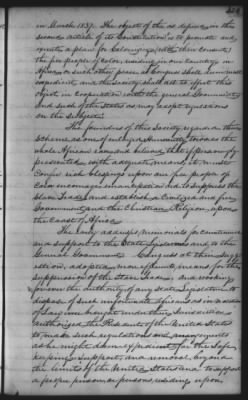 in March 1837. The objects of the as defined in the
second article of its Constitution is to promote and
execute a plan for Colonizing with their consent
the free people of color, residing in our Country, in
Africa or such other place as Congress shall deem most
expedient, and the Society shall act to effect this
object in Cooperation with the general Government
and such of the States as may adopt regulations
on the subject.
The founders of this Society regarded this
scheme as one of enlarged humanity towards the
whole African race and believed that if properly
presented with adequate means, it must
Confer rich blessings upon our free people of
Color encourage emancipation tend to suppress the
Slave Trade and establish a Civilized and free
Government and the Christian Religion, upon
the Coast of Africa.
The early addressed memorials for countenance
and support to the State Legislatures and to the
General Government. Congress at their
adopted more efficient means for the
suppression of the Slave Trade, and
the authority of any State Legislature to
dispose of such unfortunate Africans as in
of said law brought under their Jurisdiction
authorized the President of the United States
to make such regulations and arrangements
as he might deem expedient for the Safe
keeping support and removal beyond
the limits of the United States and to support
a proper person or persons, residing upon